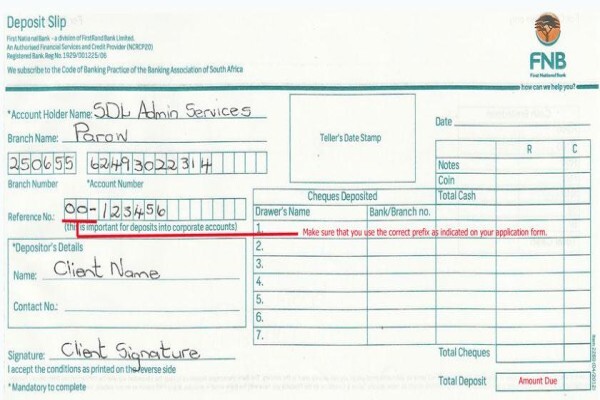 Deposit Slip
First National Bank - a division of FirstRand Bank Limited.
An Authorised Financial Services and Credit Provider (NCRCP20)
Registered Bank. Reg No. 1929/001225/06
We subscribe to the Code of Banking Practice of the Banking Association of South Africa
FNB
First National Bank
how can we help you?
*Account Holder Name: SDL Admin Services
Branch Name: Parow
250655 62493022314
Branch Number *Account Number
Reference No.: 00-123456
(this is important for deposits into corporate accounts)
Teller's Date Stamp
Date
R C
Notes
Coin
Total Cash
Cheques Deposited
Drawer's Name Bank/Branch no.
1.
Make sure that you use the correct prefix as indicated on your application form.
2.
3.
4.
5.
6.
7.
*Depositor's Details
Name: Client Name
Contact No.:
Signature: Client Signature
I accept the conditions as printed on the reverse side
* Mandatory to complete
Total Cheques
Total Deposit Amount Due